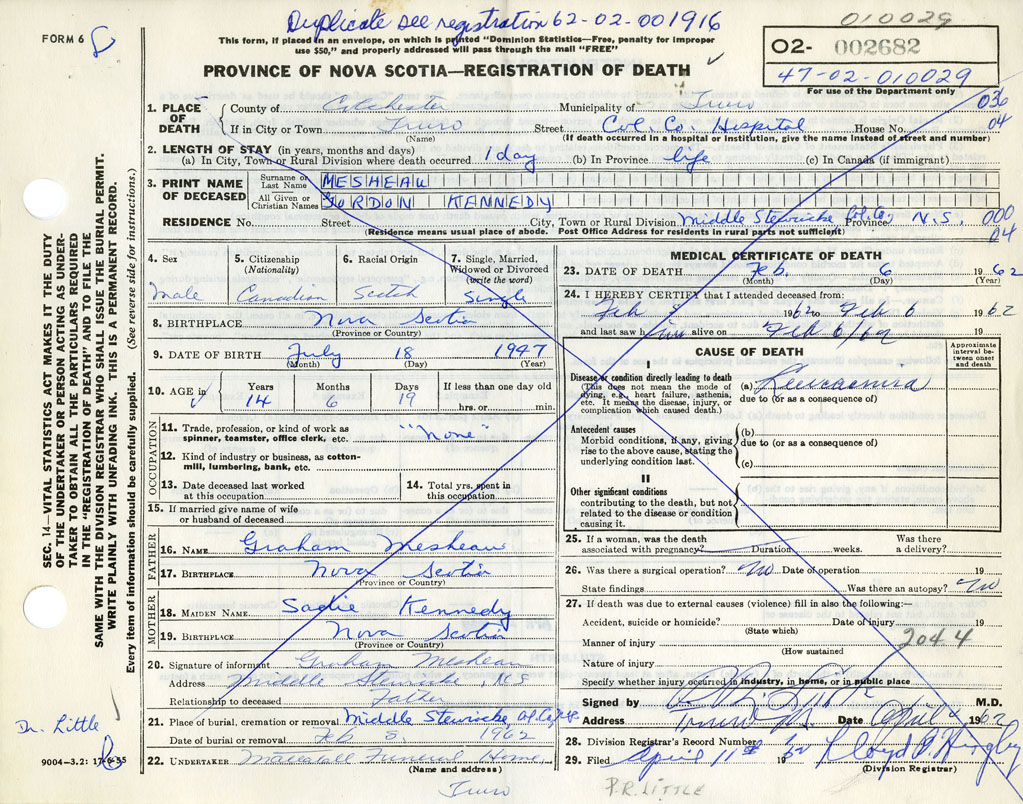 Duplicate see registration 62-02-001916
010029
FORM 6
This form, if placed in an envelope, on which is printed "Dominion Statistics—Free, penalty for improper
use $50," and properly addressed will pass through the mail "FREE"
02- 002682
47-02-010029
For use of the Department only
PROVINCE OF NOVA SCOTIA—REGISTRATION OF DEATH
036
04
1. PLACE OF DEATH
County of Colchester Municipality of Truro
If in City or Town Truro Street Col. Co. Hospital House No.
(Name) (If death occurred in a hospital or institution, give the name instead of street and number)
2. LENGTH OF STAY (in years, months and days)
(a) In City, Town or Rural Division where death occurred 1 day (b) In Province life (c) In Canada (if immigrant)
3. PRINT NAME OF DECEASED
Surname or Last Name MESHEAU
All Given or Christian Names GORDON KENNEDY
RESIDENCE No. Street City, Town or Rural Division Middle Stewiacke Col. Co. Province N.S. 000
(Residence means usual place of abode. Post Office Address for residents in rural parts not sufficient) 04
4. Sex Male
5. Citizenship (Nationality) Canadian
6. Racial Origin Scotch
7. Single, Married, Widowed or Divorced (write the word) Single
8. BIRTHPLACE Nova Scotia
(Province or Country)
9. DATE OF BIRTH July 18 1947
(Month) (Day) (Year)
10. AGE in Years Months Days If less than one day old
14 6 19 hrs. or min.
OCCUPATION
11. Trade, profession, or kind of work as spinner, teamster, office clerk, etc. "None"
12. Kind of industry or business, as cotton-mill, lumbering, bank, etc.
13. Date deceased last worked at this occupation
14. Total yrs. spent in this occupation
15. If married give name of wife or husband of deceased
FATHER
16. NAME Graham Mesheau
17. BIRTHPLACE Nova Scotia
(Province or Country)
MOTHER
18. MAIDEN NAME Sadie Kennedy
19. BIRTHPLACE Nova Scotia
(Province or Country)
20. Signature of informant Graham Mesheau
Address Middle Stewiacke, N.S
Relationship to deceased Father
21. Place of burial, cremation or removal Middle Stewiacke, Col. Co.
Date of burial or removal Feb 1962
22. UNDERTAKER Mattatall Funeral Home
(Name and address)
Truro
MEDICAL CERTIFICATE OF DEATH
23. DATE OF DEATH Feb. 6 1962
(Month) (Day) (Year)
24. I HEREBY CERTIFY that I attended deceased from:
Feb 1962 to Feb 6 1962
and last saw him alive on Feb 6/62 19
CAUSE OF DEATH
Approximate interval between onset and death
I
Disease or condition directly leading to death
(This does not mean the mode of dying, e.g., heart failure, asthenia, etc. It means the disease, injury, or complication which caused death.)
(a) Leucaemia
due to (or as a consequence of)
Antecedent causes
Morbid conditions, if any, giving rise to the above cause, stating the underlying condition last.
(b)
due to (or as a consequence of)
(c)
II
Other significant conditions
contributing to the death, but not related to the disease or condition causing it.
25. If a woman, was the death associated with pregnancy? Duration weeks. Was there a delivery?
26. Was there a surgical operation? No Date of operation 19
State findings Was there an autopsy? No
27. If death was due to external causes (violence) fill in also the following:—
Accident, suicide or homicide? Date of injury 19
(State which)
Manner of injury 2044
(How sustained)
Nature of injury
Specify whether injury occurred in industry, in home, or in public place
Signed by M.D.
Address Truro N.S. Date April 1962
28. Division Registrar's Record Number
29. Filed April 11th 1962 Lloyd
(Division Registrar)
P.R. LITTLE
SEC. 14—VITAL STATISTICS ACT MAKES IT THE DUTY
OF THE UNDERTAKER OR PERSON ACTING AS UNDER-
TAKER TO OBTAIN ALL THE PARTICULARS REQUIRED
IN THE "REGISTRATION OF DEATH" AND TO FILE THE
SAME WITH THE DIVISION REGISTRAR WHO SHALL ISSUE THE BURIAL PERMIT.
WRITE PLAINLY WITH UNFADING INK. THIS IS A PERMANENT RECORD.
Every item of information should be carefully supplied. (See reverse side for instructions.)
Dr. Little
9004-3.2: 17-6-55